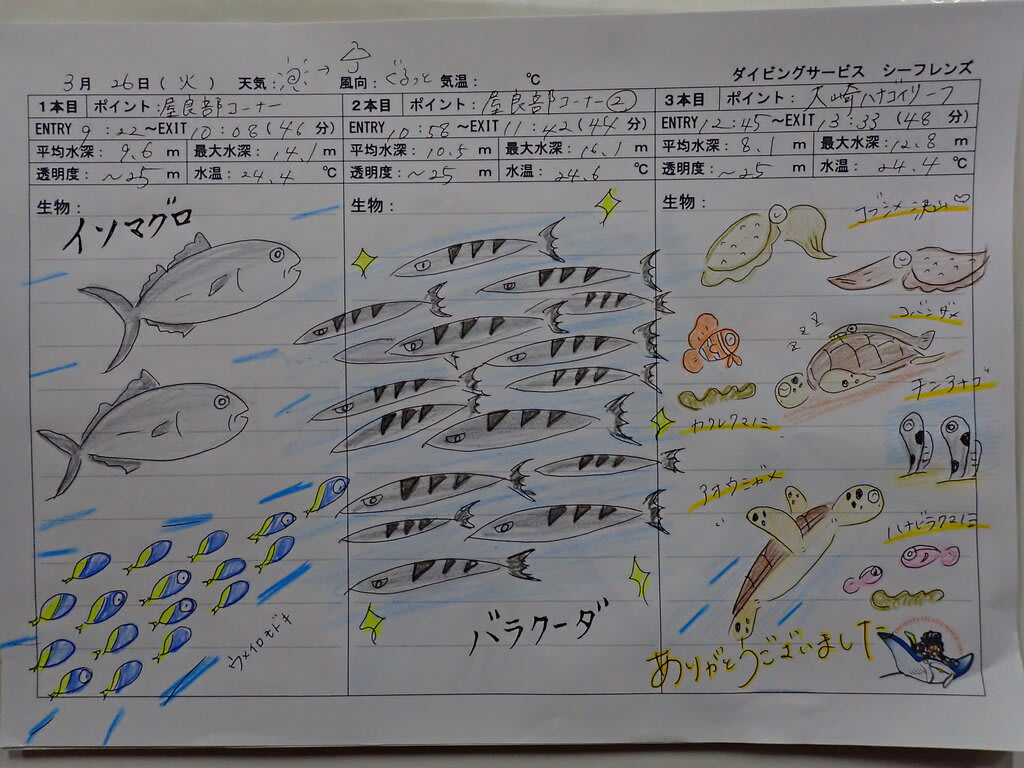 ダイビングサービス シーフレンズ
3月 26日(火) 天気: → 風向:ぐるっと 気温: ℃
1本目 ポイント:屋良部コーナー
ENTRY 9:22〜EXIT 10:08(46分)
平均水深: 9.6 m 最大水深: 14.1 m
透明度: 〜25 m 水温: 24.4 ℃
生物:
イソマグロ
ウメイロモドキ
2本目 ポイント:屋良部コーナー②
ENTRY 10:58〜EXIT 11:42(44分)
平均水深: 10.5 m 最大水深: 16.1 m
透明度: 〜25 m 水温: 24.6 ℃
生物:
バラクーダ
3本目 ポイント:大崎ハナゴイリーフ
ENTRY 12:45〜EXIT 13:33(48分)
平均水深: 8.1 m 最大水深: 12.8 m
透明度: 〜25 m 水温: 24.4 ℃
生物:
コブシメ 沢山♡
コバンザメ
z z z
チンアナゴ
カクレクマノミ
アオウミガメ
ハナビラクマノミ
ありがとうございました